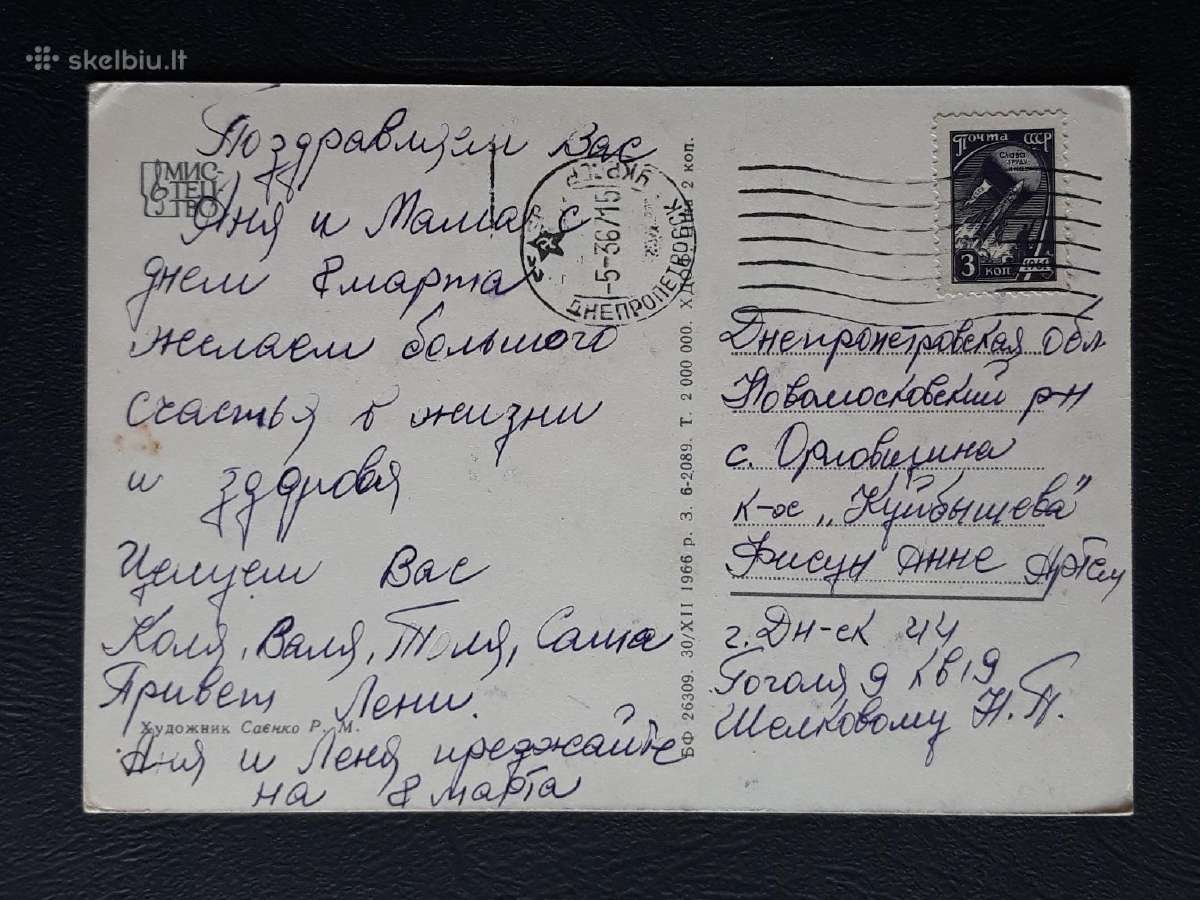 skelbiu.lt
Поздравляем Вас
МИС-
ТЕЦ-
ТВО
Аня и Мама с
днем 8 марта
желаем большого
счастья в жизни
и здоровя
Целуем Вас
Коля, Валя, Толя, Саша
Привет Лени.
Художник Саєнко Р. М.
Аня и Леня преэжайте
на 8 марта
УКР.
ДНЕПРОПЕТРОВСК
БФ 26309. 30/XII 1966 р. З. 6-2089. Т. 2 000 000. Ціна 2 коп.
Почта СССР
Слава
труду
3 коп.
1961
Днепропетровская обл
Новомосковский р-н
с. Орловщина
к-оз „Куйбышева"
Фисун Анне Артем
г. Дн-ск 44
Гоголя 9 кв 19
Шелковому Н. П.